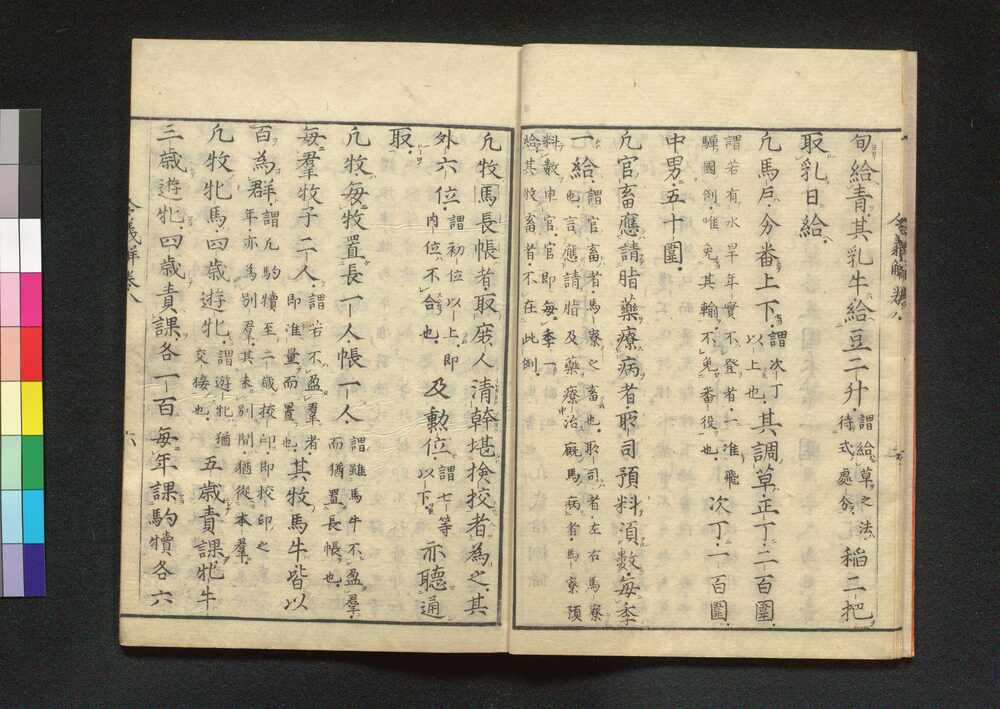 旬給青其乳牛給豆二升謂給草之法待式處分稲二把
取乳日給
凡馬戸分番上下謂次丁以上也其調草正丁二百圍
謂若有水旱年實不登者一准飛騨國例唯免其輸不免番役也次丁一百圍
中男五十圍
凡官畜應請脂藥療病者所司預料湏數毎季
一給謂官畜者馬寮之畜也所司者左右馬寮也言應請脂及藥療治厩馬病者馬寮預
料數申官官即毎季一給其牧畜者不在此例
令義解卷八
凡牧馬長帳者取庶人清幹堪檢挍者為之其
外六位謂初位以上即内位不合也及勲位謂七等以下亦聽通
取
凡牧毎牧置長一人帳一人謂雖馬牛不盈羣而猶置長帳也
毎羣牧子二人謂若不盈羣者即准量而置也其牧馬牛皆以
百為群謂凡駒犢至二歳挍印即挍印之年亦為別羣其未別間猶從本羣
凡牧牝馬四歳遊牝謂遊牝猶交接也五歳責課牝牛
三歳遊牝四歳責課各一百毎年課駒犢各六
令義解卷八
六